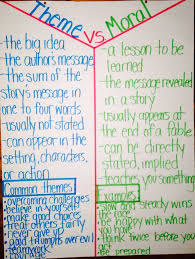 Theme vs Moral
-the big idea
-the authors message
-the sum of the
story's message in
one to four words
-usually not stated
-can appear in the
setting, characters,
or action
Common themes
-overcoming challenges
-believe in yourself
-make good choices
-treat others fairly
-never give up
-good triumphs over evil
-teamwork
-a lesson to be
learned
-the message revealed
in a story
-usually appears at
the end of a fable
-can be directly
stated, implied
-teaches you something
Examples
-slow and steady wins
the race
-be happy with what
you have
-think twice before you
-be prepared